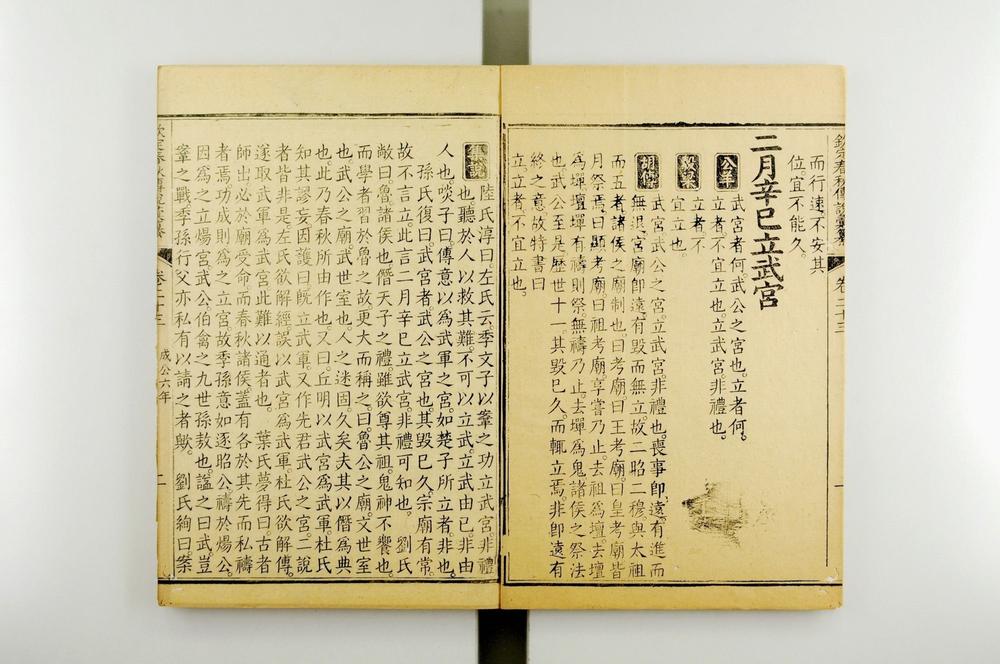 而行速不安其
位宜不能久
二月辛巳立武宮
公羊
武宮者何。武公之宮也。立者何。
立者不宜立也。立武宮非禮也。
穀梁
立者不
宜立也。
胡傳
武宮武公之宮。立武宮非禮也。喪事卽遠。有進而
無退。宮廟卽遠。有毀而無立。故二昭二穆與太祖
而五者。諸侯之廟制也。曰考廟。曰王考廟。曰皇考廟。皆
月祭焉。曰顯考廟。曰祖考廟。享嘗乃止。去祖爲壇。去壇
爲墠。壇墠有禱則祭。無禱乃止。去墠爲鬼。諸侯之祭法
也。武公至是歷世十一。其毀已久。而輒立焉。非卽遠有
終之意。故特書曰
立。立者不宜立也。
欽定春秋傳說彙纂
卷二十三
集說
陸氏淳曰。左氏云。季文子以鞌之功立武宮。非禮
也。聽於人以救其難。不可以立武。立武由已。非由
人也。啖子曰。傳意以爲武軍之宮。如楚子所立者。非也。
孫氏復曰。武宮者。武公之宮也。其毀已久。宗廟有常。
故不言立。此言二月辛巳立武宮。非禮可知也。 劉氏
敞曰。魯諸侯也。僭天子之禮。雖欲尊其祖。鬼神不饗也。
而學者習於魯之故。更大而稱之。曰魯公之廟。文世室
也。武公之廟。武世室也。人之迷固久矣。夫其以僭爲典
也。此乃春秋所由作也。又曰。丘明以武宮爲武軍。杜氏
知其謬妄。因護曰。旣立武軍。又作先君武公之宮。二說
者皆非是。左氏欲解經。誤以武宮爲武軍。杜氏欲解傳。
遂取武軍爲武宮。此難以通者也。 葉氏夢得曰。古者
師出必於廟受命。而春秋諸侯。蓋有各於其先而私禱
者焉。功成則爲之立宮。故季孫意如逐昭公。禱於煬公。
因爲之立煬宮。武公伯禽之九世孫敖也。謚之曰武。豈
鞌之戰。季孫行父亦私有以請之者歟。 劉氏絢曰。案
卷二十三
成公六年